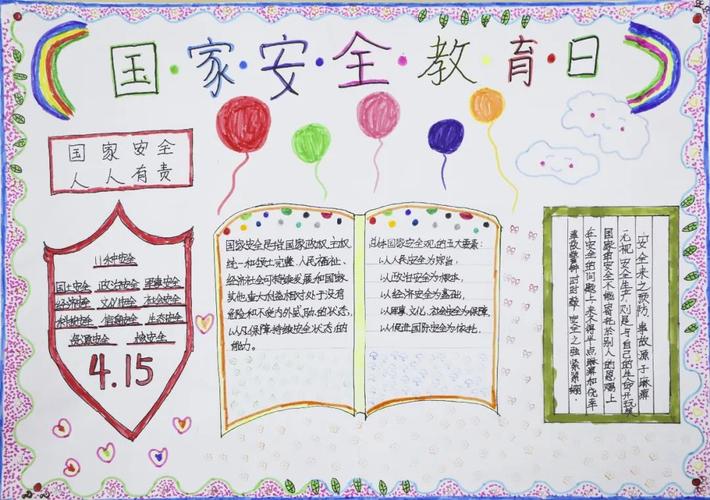 国·家·安·全·教·育·日
国家安全
人人有责
11种安全
国土安全 政治安全 军事安全
经济安全 文化安全 社会安全
科技安全 信息安全 生态安全
资源安全 核安全
4.15
国家安全是指国家政权、主权
统一和领土完整、人民福祉、
经济社会可持续发展和国家
其他重大利益相对处于没有
危险和不受内外威胁的状态,
以及保障持续安全状态的
能力。
总体国家安全观的五大要素:
以人民安全为宗旨,
以政治安全为根本,
以经济安全为基础,
以军事、文化、社会安全为保障,
以促进国际安全为依托。
安全来之预防,事故源于麻痹
无视安全生产,则是与自己的生命开玩笑
国家的安全不能寄托於别人的恩赐上
在安全的问题上来不得半点麻痹和侥幸
事故警钟时时鸣,安全之弦紧紧绷。